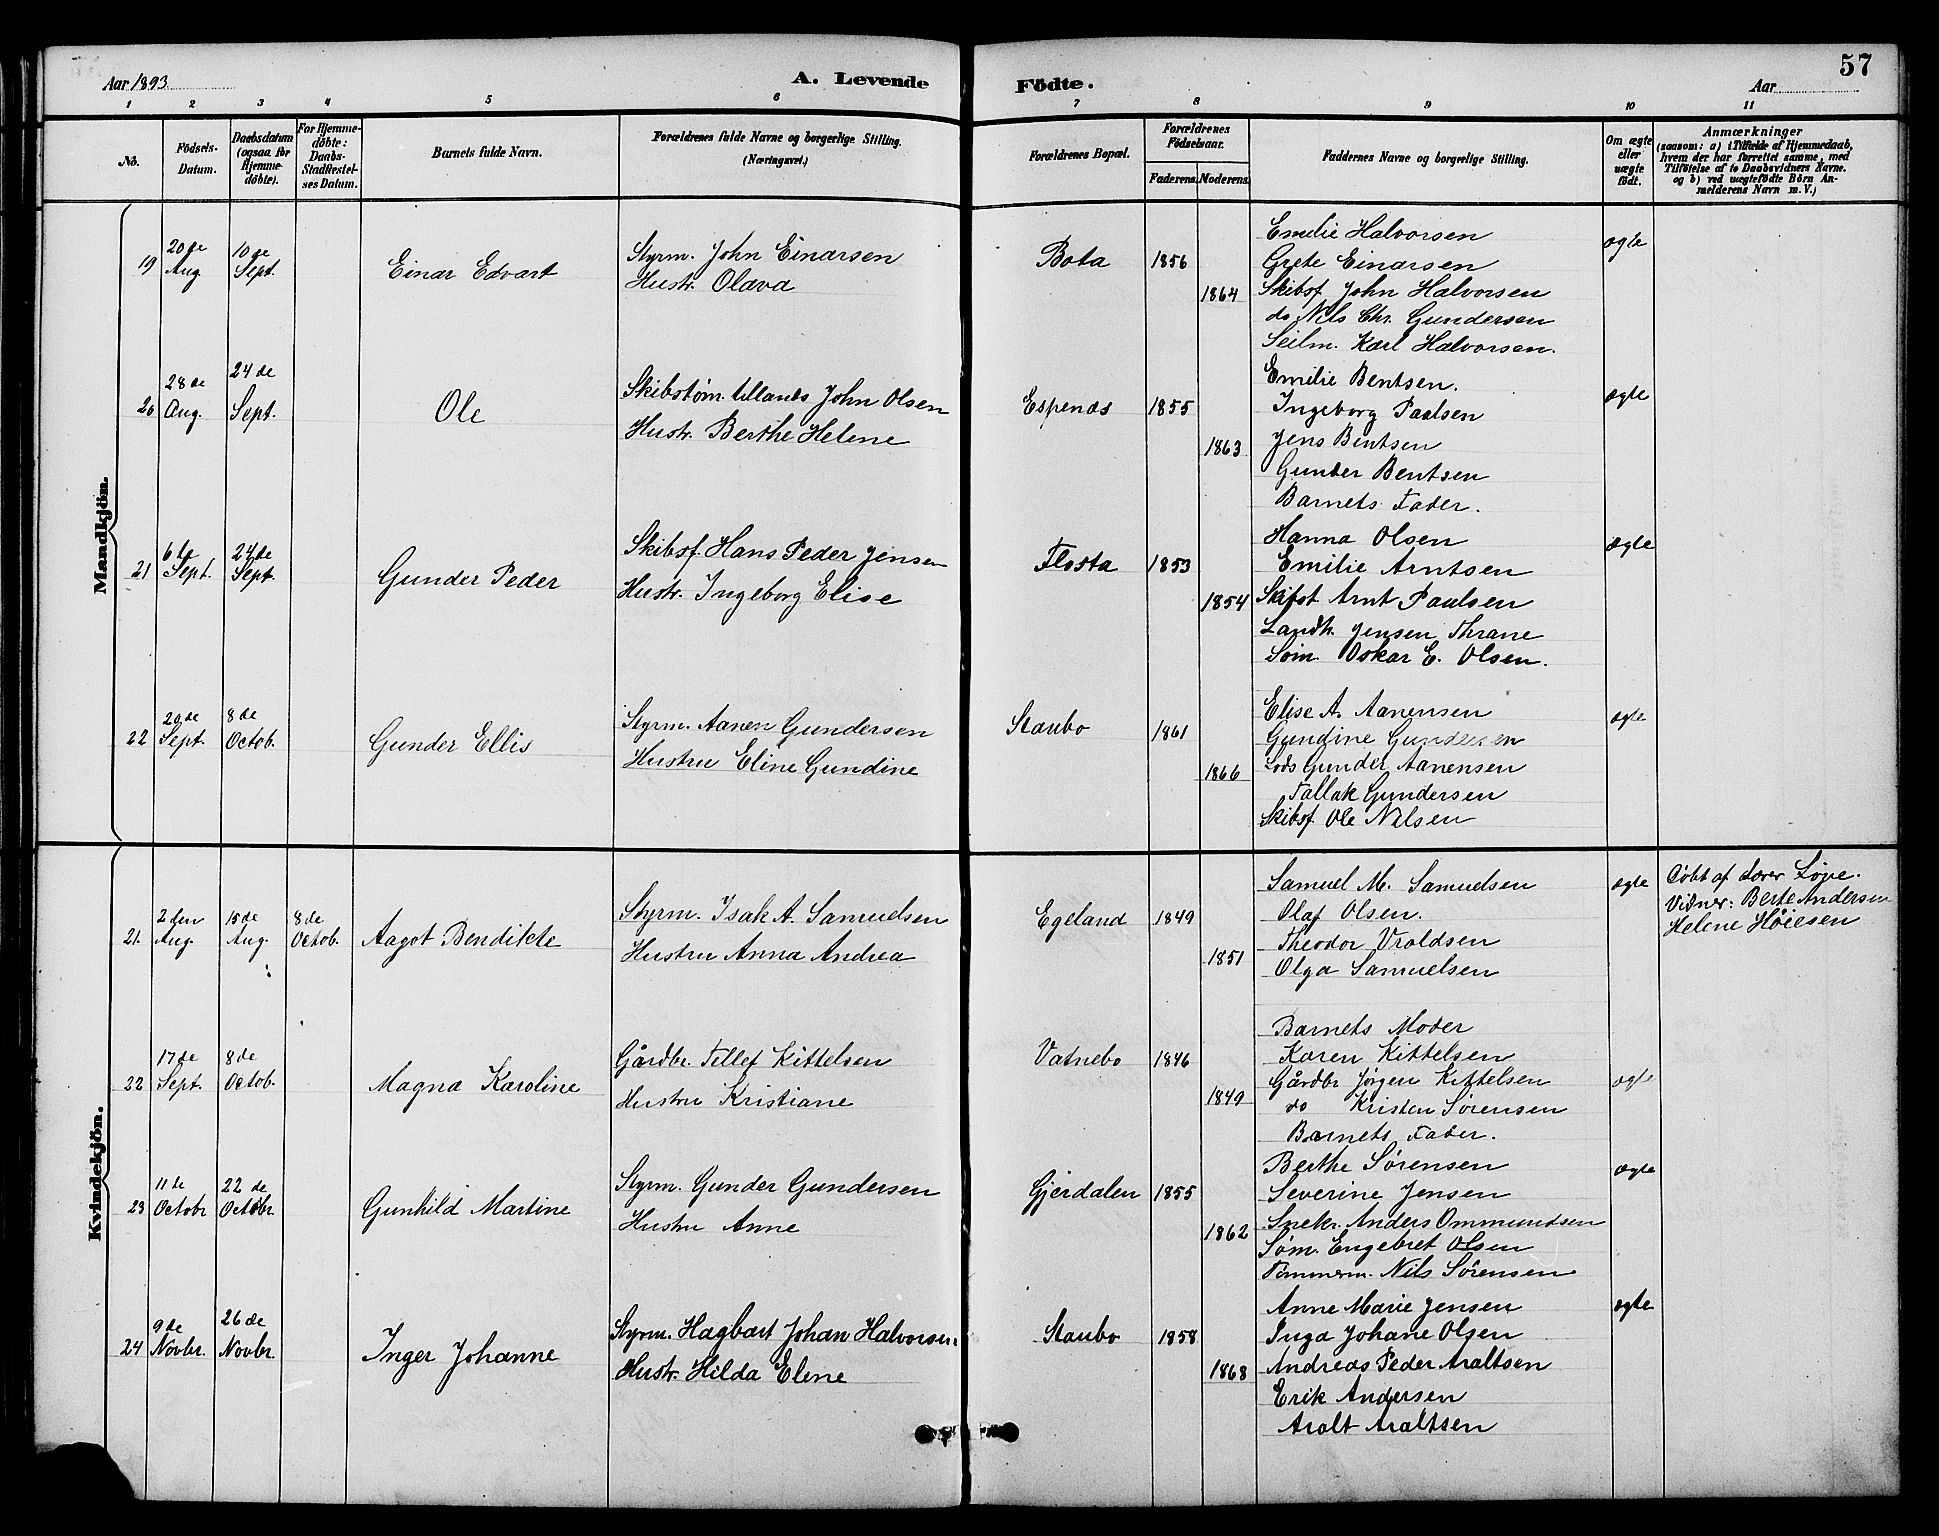 57
Aar 1893.
A. Levende
Födte.
Aar
1 2 3 4 5 6 7 8 9 10 11
No.
Födsels-
Datum.
Daabsdatum
(ogsaa for
Hjemme-
döbte).
For Hjemme-
döbte:
Daabs-
Stadfæstel-
ses Datum.
Barnets fulde Navn.
Forældrenes fulde Navne og borgerlige Stilling.
(Næringsvei.)
Forældrenes Bopæl.
Forældrenes
Födselsaar.
Faderens.
Moderens.
Faddernes Navne og borgerlige Stilling.
Om ægte
eller
uægte
födt.
Anmærkninger
(saasom: a) i Tilfælde af Hjemmedaab,
hvem der har forrettet samme, med
Tilföielse af to Daabsvidners Navne.
og b) ved uægtefödte Börn An-
melderens Navn m. V.)
Mandkjön.
19
20de
Aug
10de
Sept.
Einar Edvart
Styrm. John Einarsen
Hustr. Olava
Bota
1856
1864
Emilie Halvorsen
Grete Einarsen
Skibsf. John Halvorsen
do Nils Chr. Gundersen
Seilm. Karl Halvorsen.
ægte
20
28de
Aug.
24de
Sept.
Ole
Skibstøm. tillands John Olsen
Hustr. Berthe Helene
Espenæs
1855
1863
Emilie Bentsen.
Ingeborg Paulsen
Jens Bentsen
Gunder Bentsen
Barnets Fader.
ægte
21
6de
Sept.
24de
Sept.
Gunder Peder
Skibsf. Hans Peder Jensen
Hustr. Ingeborg Elise
Flosta
1853
1854
Hanna Olsen
Emilie Arntsen
Skibsf. Arnt Paulsen
Landh. Jensen Thrane
Søm. Oskar E. Olsen.
ægte
22
20de
Sept.
8de
Octob.
Gunder Ellis
Styrm. Aanen Gundersen
Hustru Eline Gundine
Staubo
1861
1866
Elise A. Aanensen
Gundine Gundersen
Lods Gunder Aanensen
Tallak Gundersen
Skibsf. Ole Nilsen
ægte
Kvindekjön.
21.
2den
Aug.
15de
Aug.
8de
Octob.
Aagot Bendikte
Styrm. Isak A. Samuelsen
Hustru Anna Andrea
Egeland
1849
1851
Samuel M. Samuelsen
Olaf Olsen.
Theodor Vroldsen
Olga Samuelsen
ægte
Døbt af Lærer Løge.
Vidner: Berte Andersen
Helene Høiesen
22
17de
Sept.
8de
Octob.
Magna Karoline
Gårdbr. Tellef Kittelsen
Hustru Kristiane
Vatnebo
1846
1849
Barnets Moder
Karen Kittelsen
Gårdbr Jørgen Kittelsen
do Kristen Sørensen
Barnets Fader.
ægte
23
11te
Octobr
22de
Octobr.
Gunhild Martine
Styrm. Gunder Gundersen
Hustru Anne
Gjerdalen
1855
1862
Berthe Sørensen
Severine Jensen
Snekr. Anders Ommundsen
Søm. Engebret Olsen
Tømmerm. Nils Sörensen
ægte
24
9de
Novbr.
26de
Novbr.
Inger Johanne
Styrm. Hagbart Johan Halvorsen
Hustr. Hilda Elene
Staubo
1858
1868
Anne Marie Jensen
Inga Johane Olsen
Andreas Peder Araltsen
Erik Andersen
Aralt Araltsen
ægte